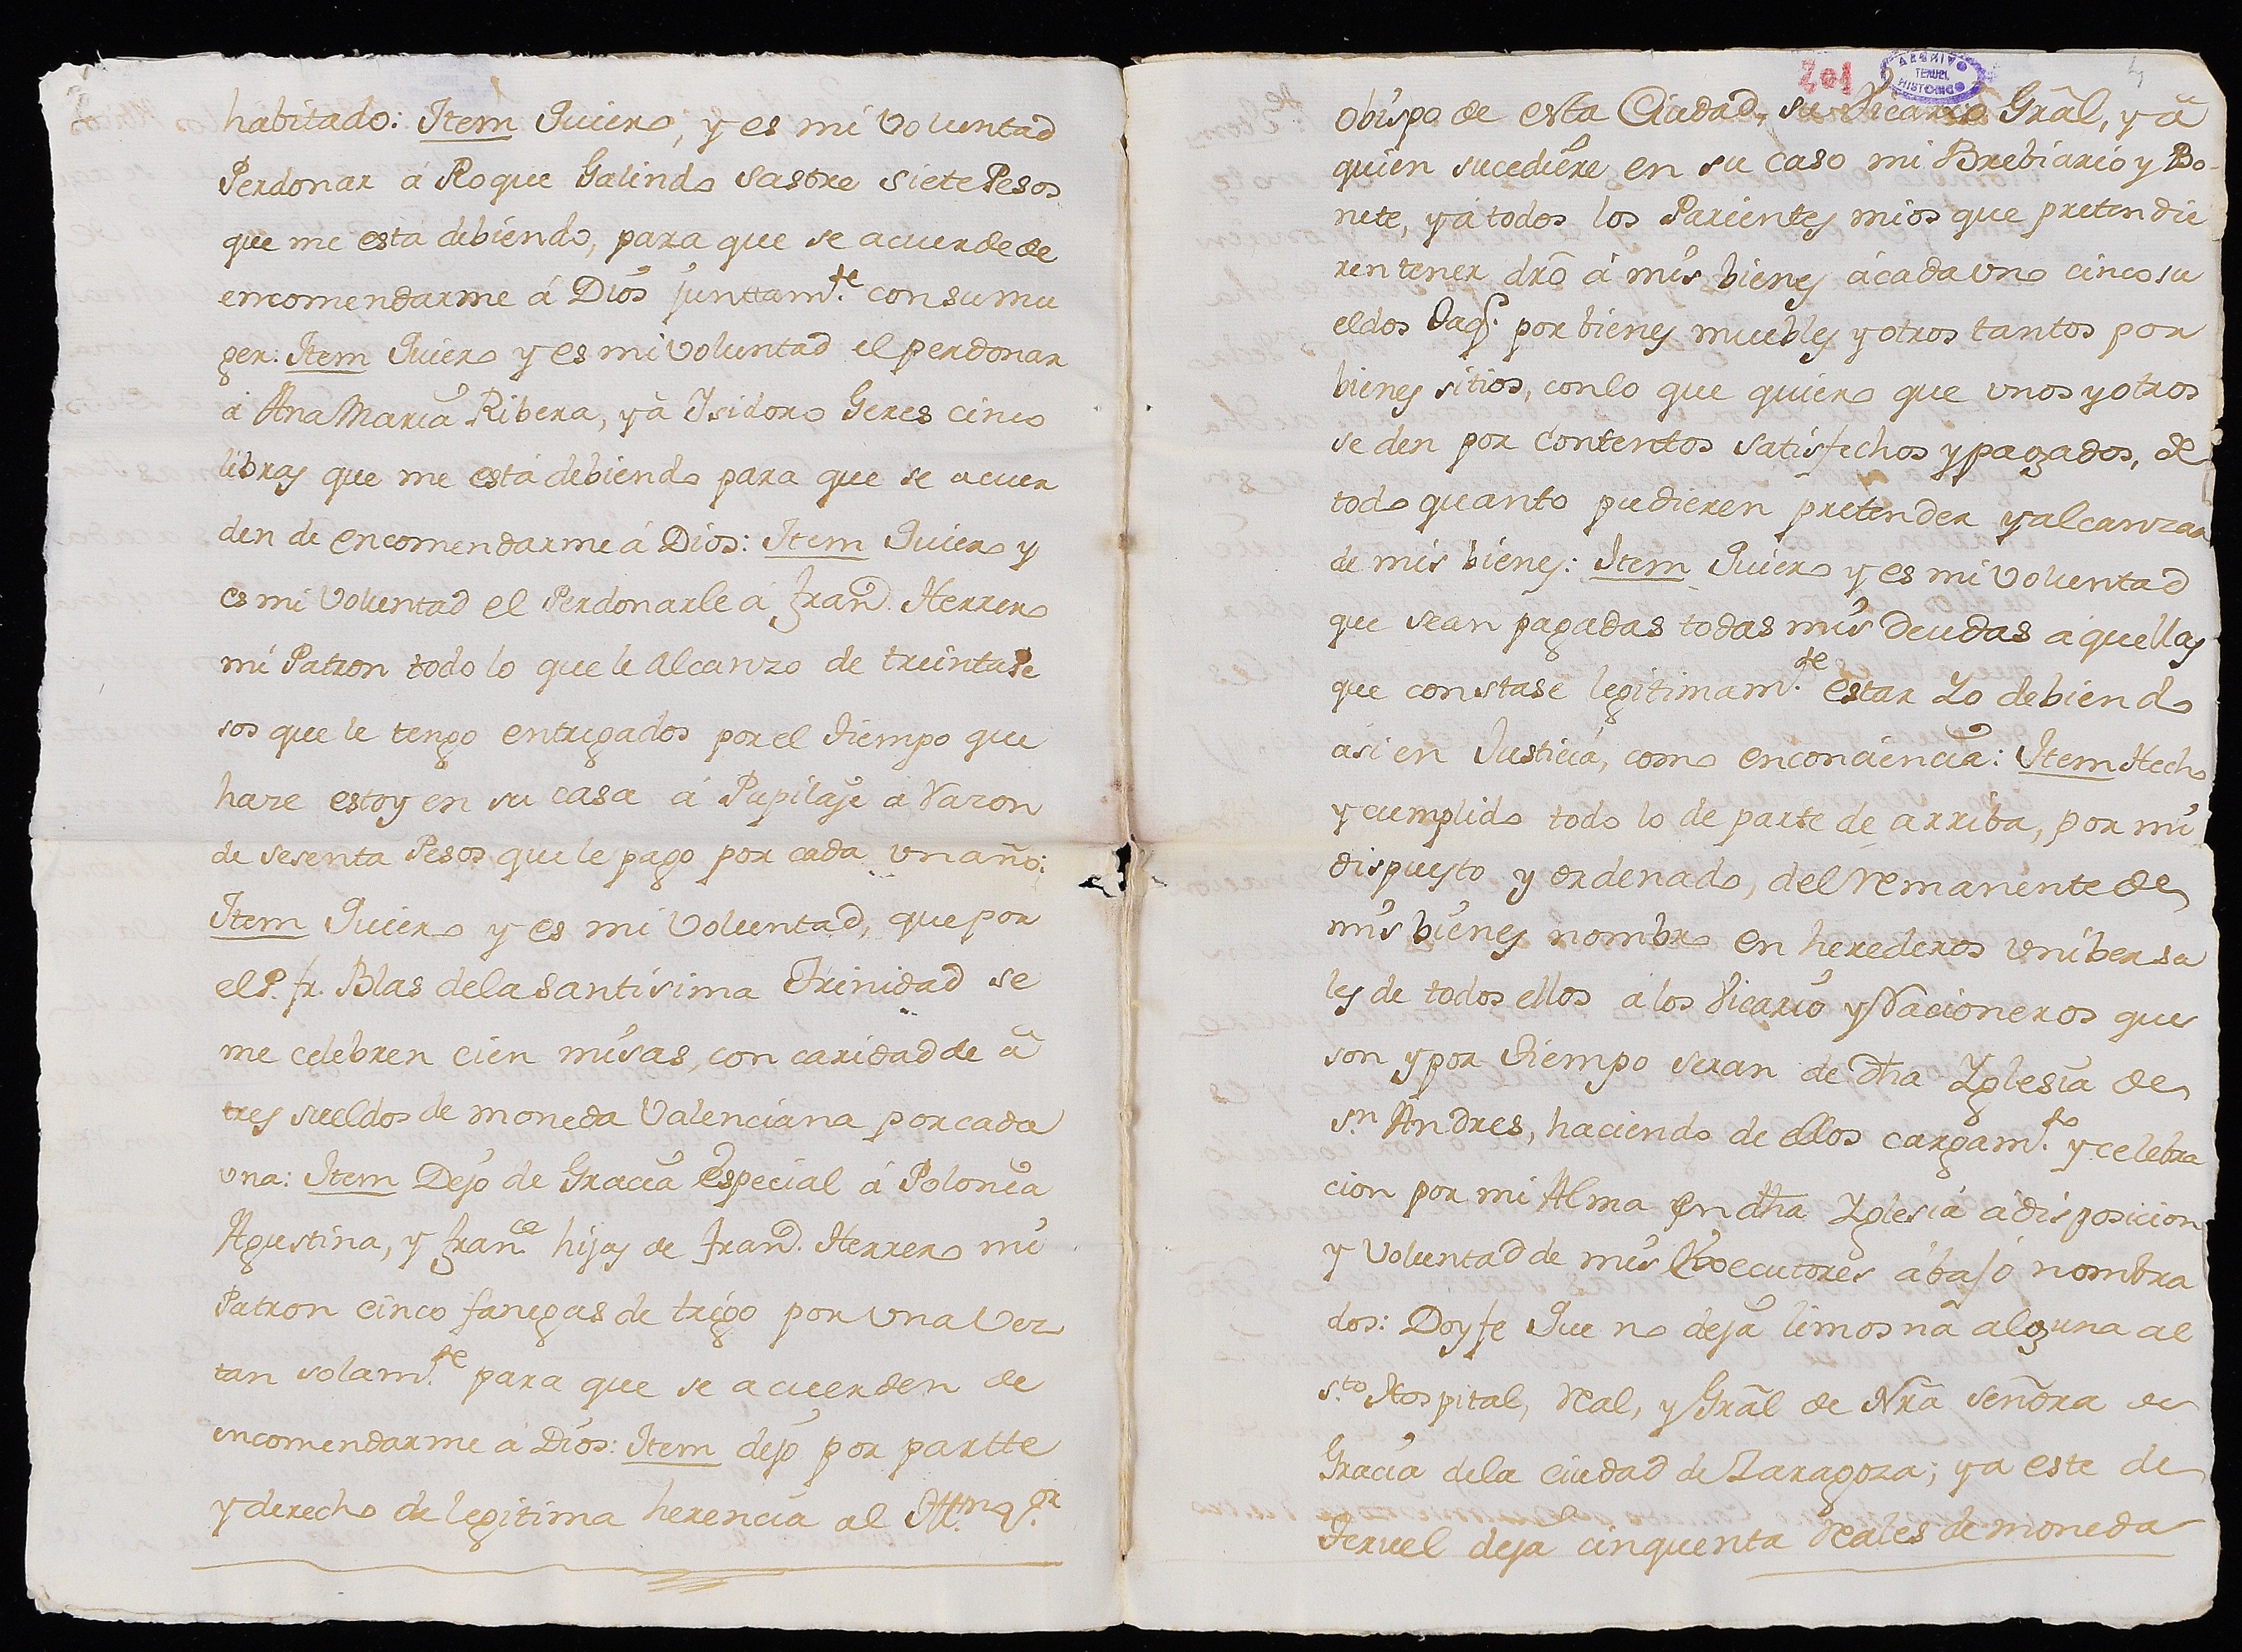 habitado: Item Quiero, y es mi Voluntad
Perdonar á Roque Galindo Sastre siete Pesos
que me está debiendo, para que se acuerde de
encomendarme á Dios junttam.te con su mu
ger: Item Quiero y es mi Voluntad el perdonar
á Ana Maria Ribera, y á Isidoro Geres cinco
libras que me está debiendo para que se acuer
den de encomendarme á Dios: Item Quiero y
es mi Voluntad el Perdonarle á Fran.co Herrero
mi Patron todo lo que le Alcanzo de treinta Pe
sos que le tengo entregados por el tiempo que
haze estoy en su casa á Pupilaje a Razon
de sesenta Pesos que le pago por cada un año:
Item Quiero y es mi Voluntad, que por
el P. fr. Blas de la Santísima Trinidad se
me celebren cien misas, con caridad de á
tres sueldos de moneda Valenciana por cada
una: Item Dejo de Gracia Especial á Polonia
Agustina, y Fran.ca hijas de Fran.co Herrero mi
Patron cinco fanegas de trigo por Una Vez
tan solam.te para que se acuerden de
encomendarme á Dios: Item dejo por partte
y derecho de legitima herencia al Ill.mo S.or
201
ARCHIVO HISTORICO TERUEL
obispo de esta Ciudad, su Vicario Grãl, y á
quien sucediere en su caso mi Brebiario y Bo-
nete, y á todos los Parientes mios que pretendie
ren tener drõ á mis bienes á cada uno cinco su
eldos Jaq.s por bienes muebles y otros tantos por
bienes sitios, con lo que quiero que unos y otros
se den por contentos satisfechos y pagados, de
todo quanto pudieren pretender y alcanzar
de mis bienes: Item Quiero y es mi Voluntad
que sean pagadas todas mis Deudas aquellas
que constase legitimam.te estar Yo debiendo
asi en Justicia, como en conciencia: Item Hecho
y cumplido todo lo de parte de arriba, por mi
dispuesto y ordenado, del remanente de
mis bienes nombro en herederos unibersa
les de todos ellos a los Vicario y Racioneros que
son y por tiempo seran de dha Yglesia de
S.n Andres, haciendo de ellos cargam.to y celebra
cion por mi Alma en dha Yglesia á disposicion
y Voluntad de mis Executores ábajo nombra
dos: Doy fe Que no deja limosna alguna al
S.to Hospital, Real, y Grãl de Nrã Señora de
Gracia de la ciudad de Zaragoza; y a este de
Teruel deja cinquenta Reales de moneda